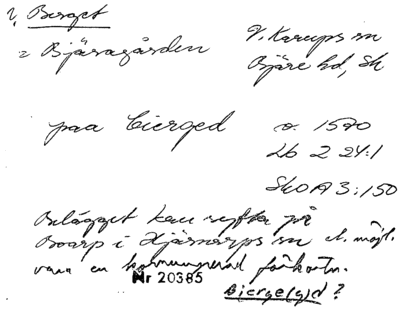 ?, Berget
V. Karups sn
= Bjäragården
Bjäre hd, Sk
paa Bierged o. 1570
Lb 2 24:1
SkOA 3:150
Belägget kan syfta på
Boarp i Hjärnarps sn el. möjl.
vara en förkortn.
Nr 20385
Bierge(g)d ?